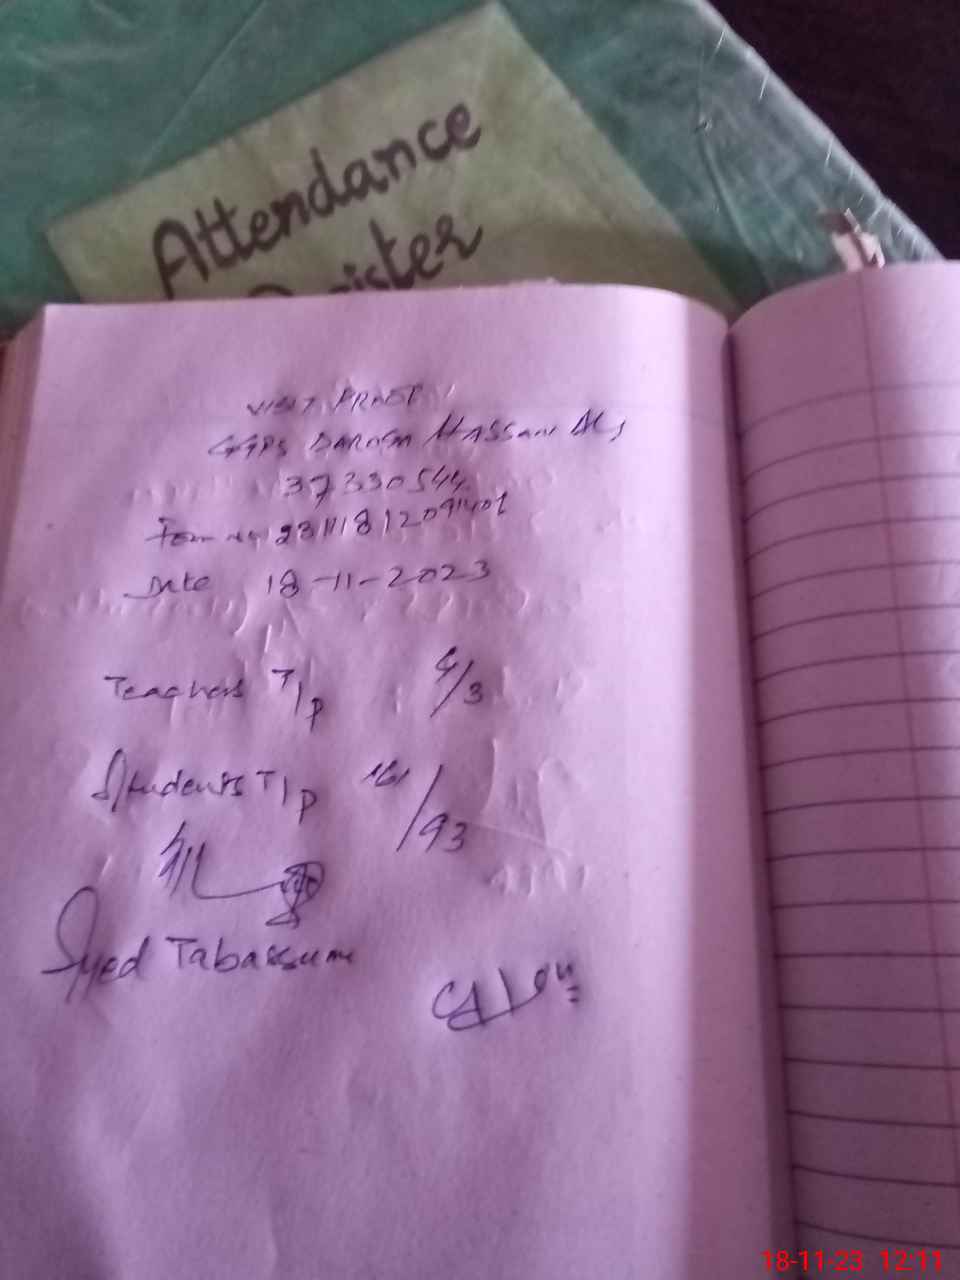 Attendance
Register
VISIT PROOF
GGPS DAROGA HASSAN ALI
37330544
Form No 23111812091401
Date 18-11-2023
Teachers T/P 4/3
Students T/P 161/93
Syed Tabassum
18-11-23 12:11